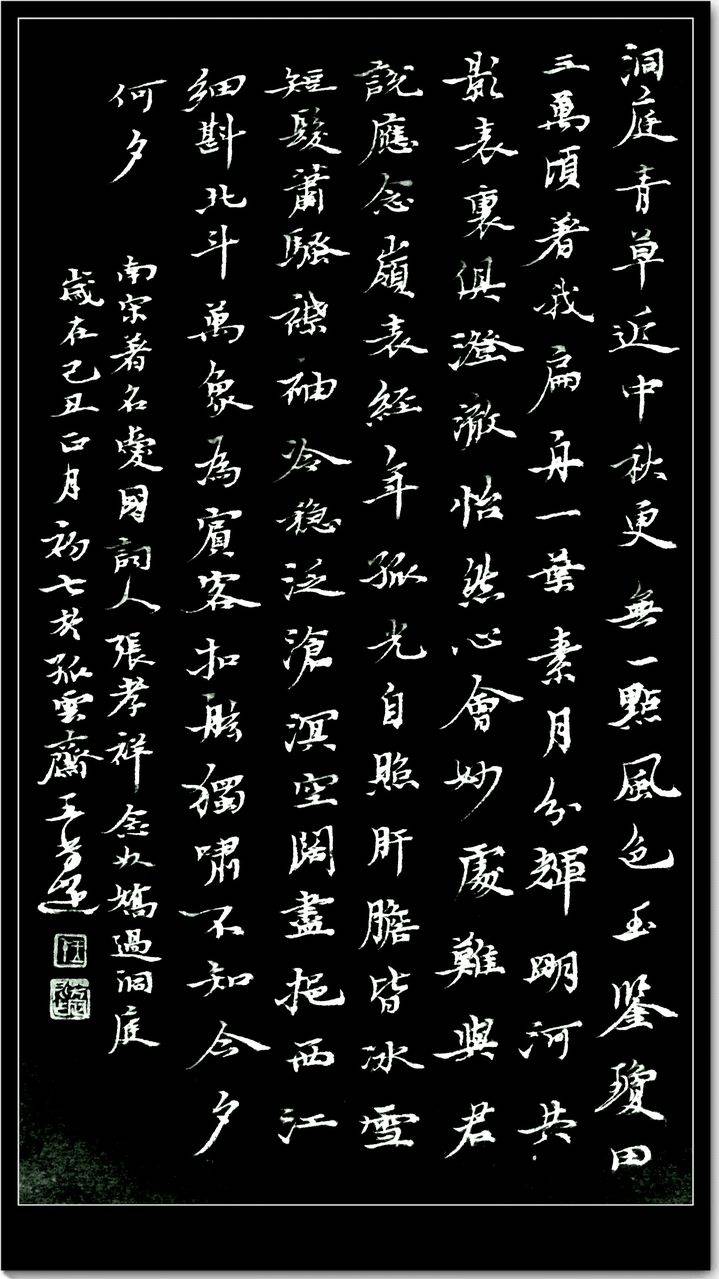 洞庭青草近中秋更無一點風色玉鑒瓊田
三萬頃着我扁舟一葉素月分輝明河共
影表裏俱澄澈怡然心會妙處難與君
說應念嶺表經年孤光自照肝膽皆冰雪
短髮蕭騷襟袖冷穩泛滄溟空闊盡挹西江
細斟北斗萬象為賓客扣舷獨嘯不知今夕
何夕
南宋著名愛國詞人張孝祥念奴嬌過洞庭
歲在己丑正月初七於孤雲齋王